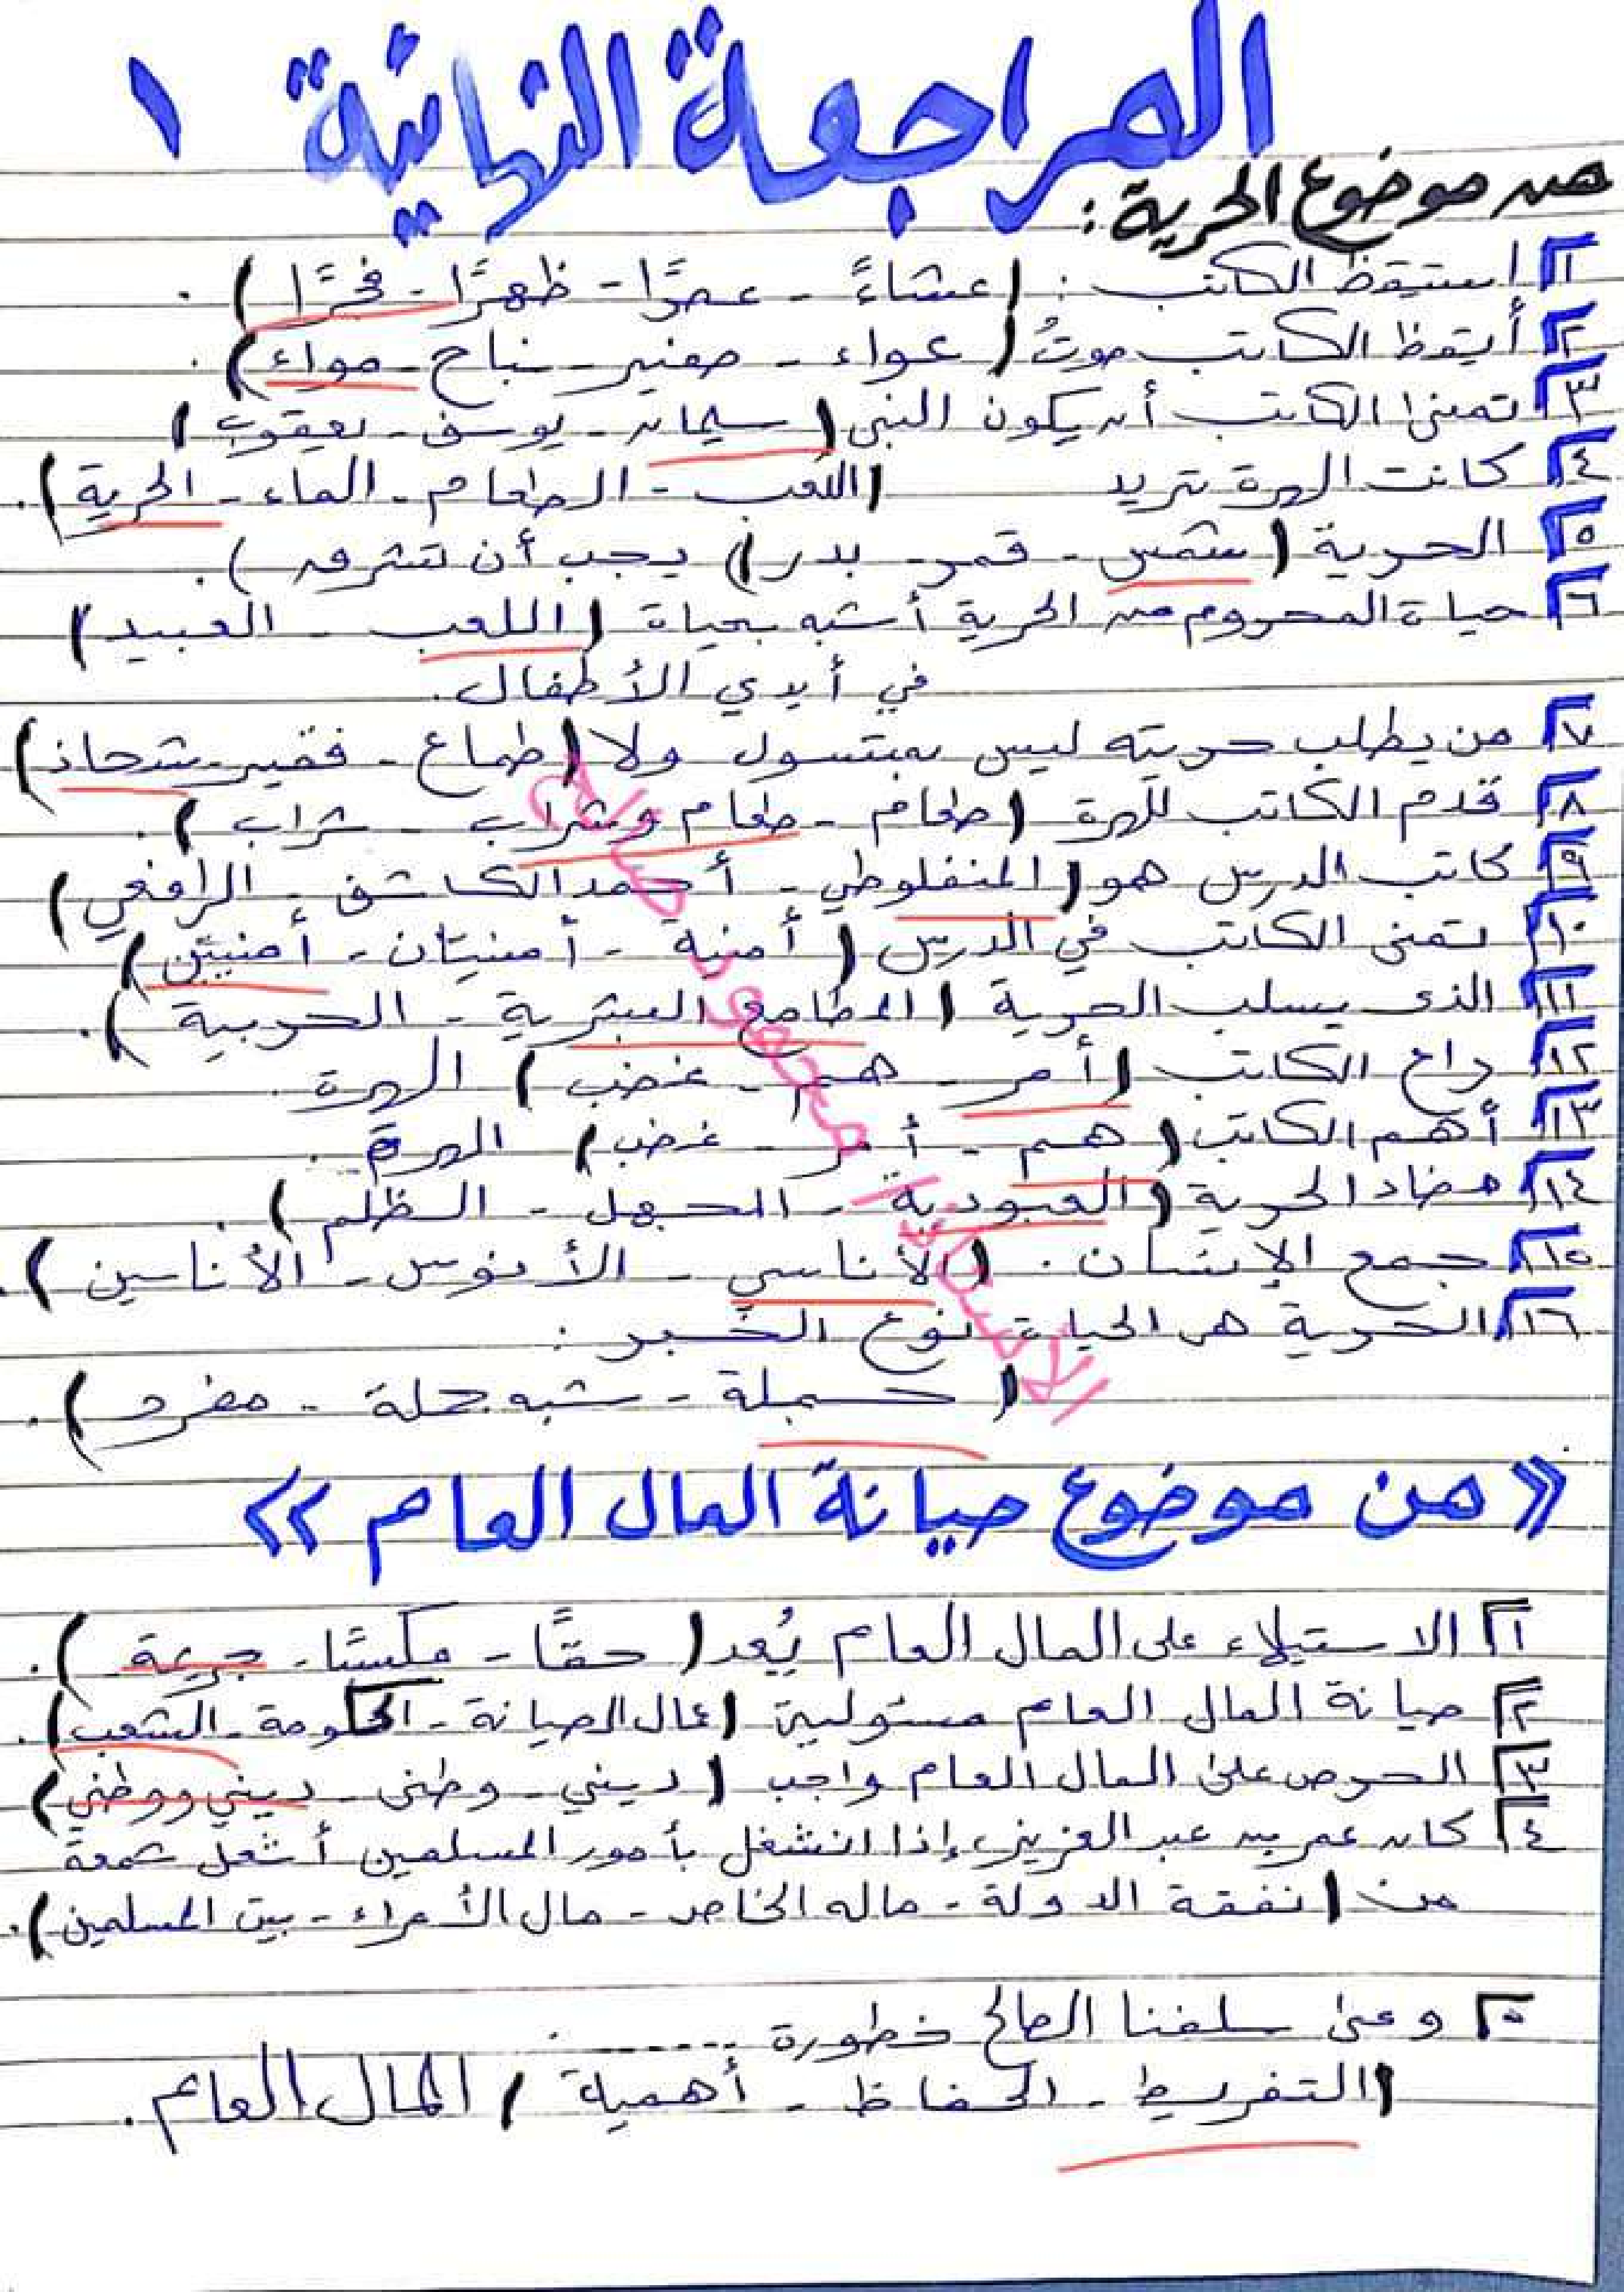 المراجعة النهائية ١
من موضوع الحرية :
١ استيقظ الكاتب : (عشاءً - عصرًا - ظهرًا - فجرًا) .
٢ أيقظ الكاتب صوتُ (عواء - صفير - نباح - مواء) .
٣ تمنى الكاتب أن يكون النبى (سليمان - يوسف - يعقوب)
٤ كانت الهرة تريد (اللعب - الطعام - الماء - الحرية) .
٥ الحرية (شمس - قمر - بدر) يجب أن تشرق) .
٦ حياة المحروم من الحرية أشبه بحياة (اللعب - العبيد)
في أيدي الأطفال .
٧ من يطلب حريته ليس بمتسول ولا (طماع - فقير - شحاذ)
٨ قدم الكاتب للهرة (طعام - طعام وشراب - شراب) .
٩ كاتب الدرس هو (المنفلوطي - أحمد الكاشف - الرافعي)
١٠ تمنى الكاتب في الدرس (أمنية - أمنيتان - أمنيتين)
١١ الذى يسلب الحرية (المطامع البشرية - الحربية) .
١٢ راع الكاتب (أمر - هم - غضب) الهرة .
١٣ أهم الكاتب (هم - أمر - غضب) الهرة .
١٤ مضاد الحرية (العبودية - الجهل - الظلم) .
١٥ جمع الإنسان . (الأناسي - الأنوس - الأناسين) .
١٦ الحرية هى الحياة نوع الخبر :
(جملة - شبه جملة - مفرد) .
« من موضوع صيانة المال العام »
١ الاستيلاء على المال العام يُعد (حقًا - مكسبًا - جريمة) .
٢ صيانة المال العام مسئولية (عمال الصيانة - الحكومة - الشعب) .
٣ الحرص على المال العام واجب (ديني - وطنى - ديني ووطني)
٤ كان عمر بن عبد العزيز إذا انشغل بأمور المسلمين أشعل شمعة
من (نفقة الدولة - ماله الخاص - مال الأمراء - بيت المسلمين) .
٥ وعى سلفنا الصالح خطورة ......
(التفريط - الحفاظ - أهمية) المال العام .